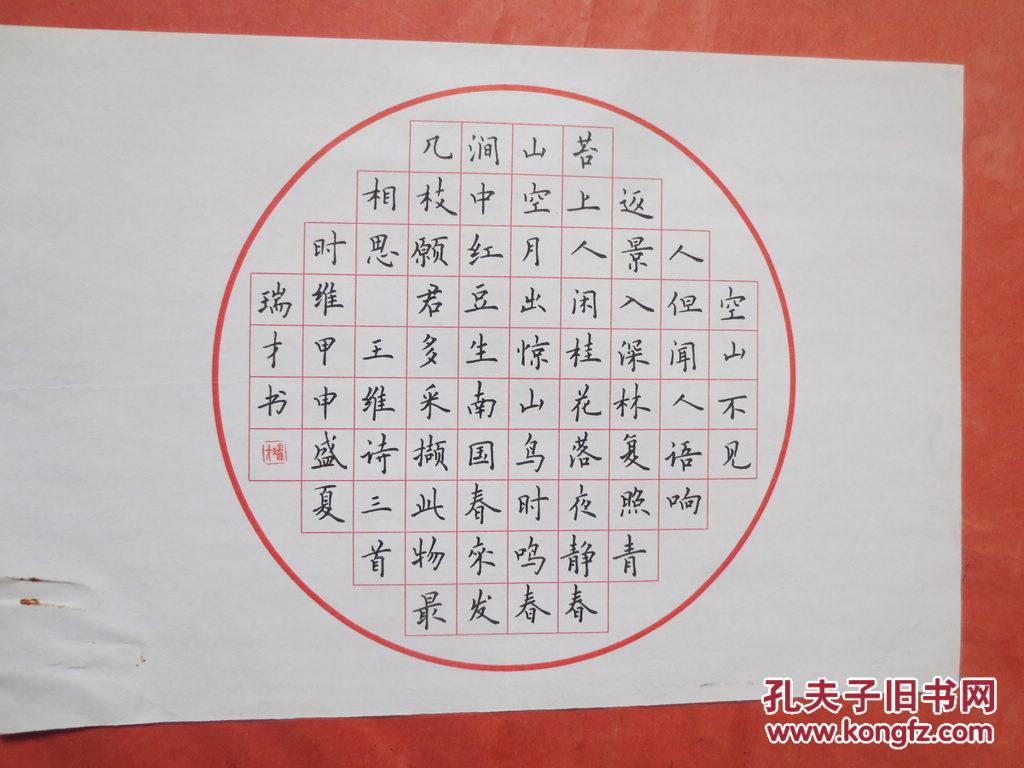 空山不见
人但闻人语响
返景入深林复照青
苔上人闲桂花落夜静春
山空月出惊山鸟时鸣春
涧中红豆生南国春来发
几枝愿君多采撷此物最
相思 王维诗三首
时维甲申盛夏
瑞才书
孔夫子旧书网
www.kongfz.com